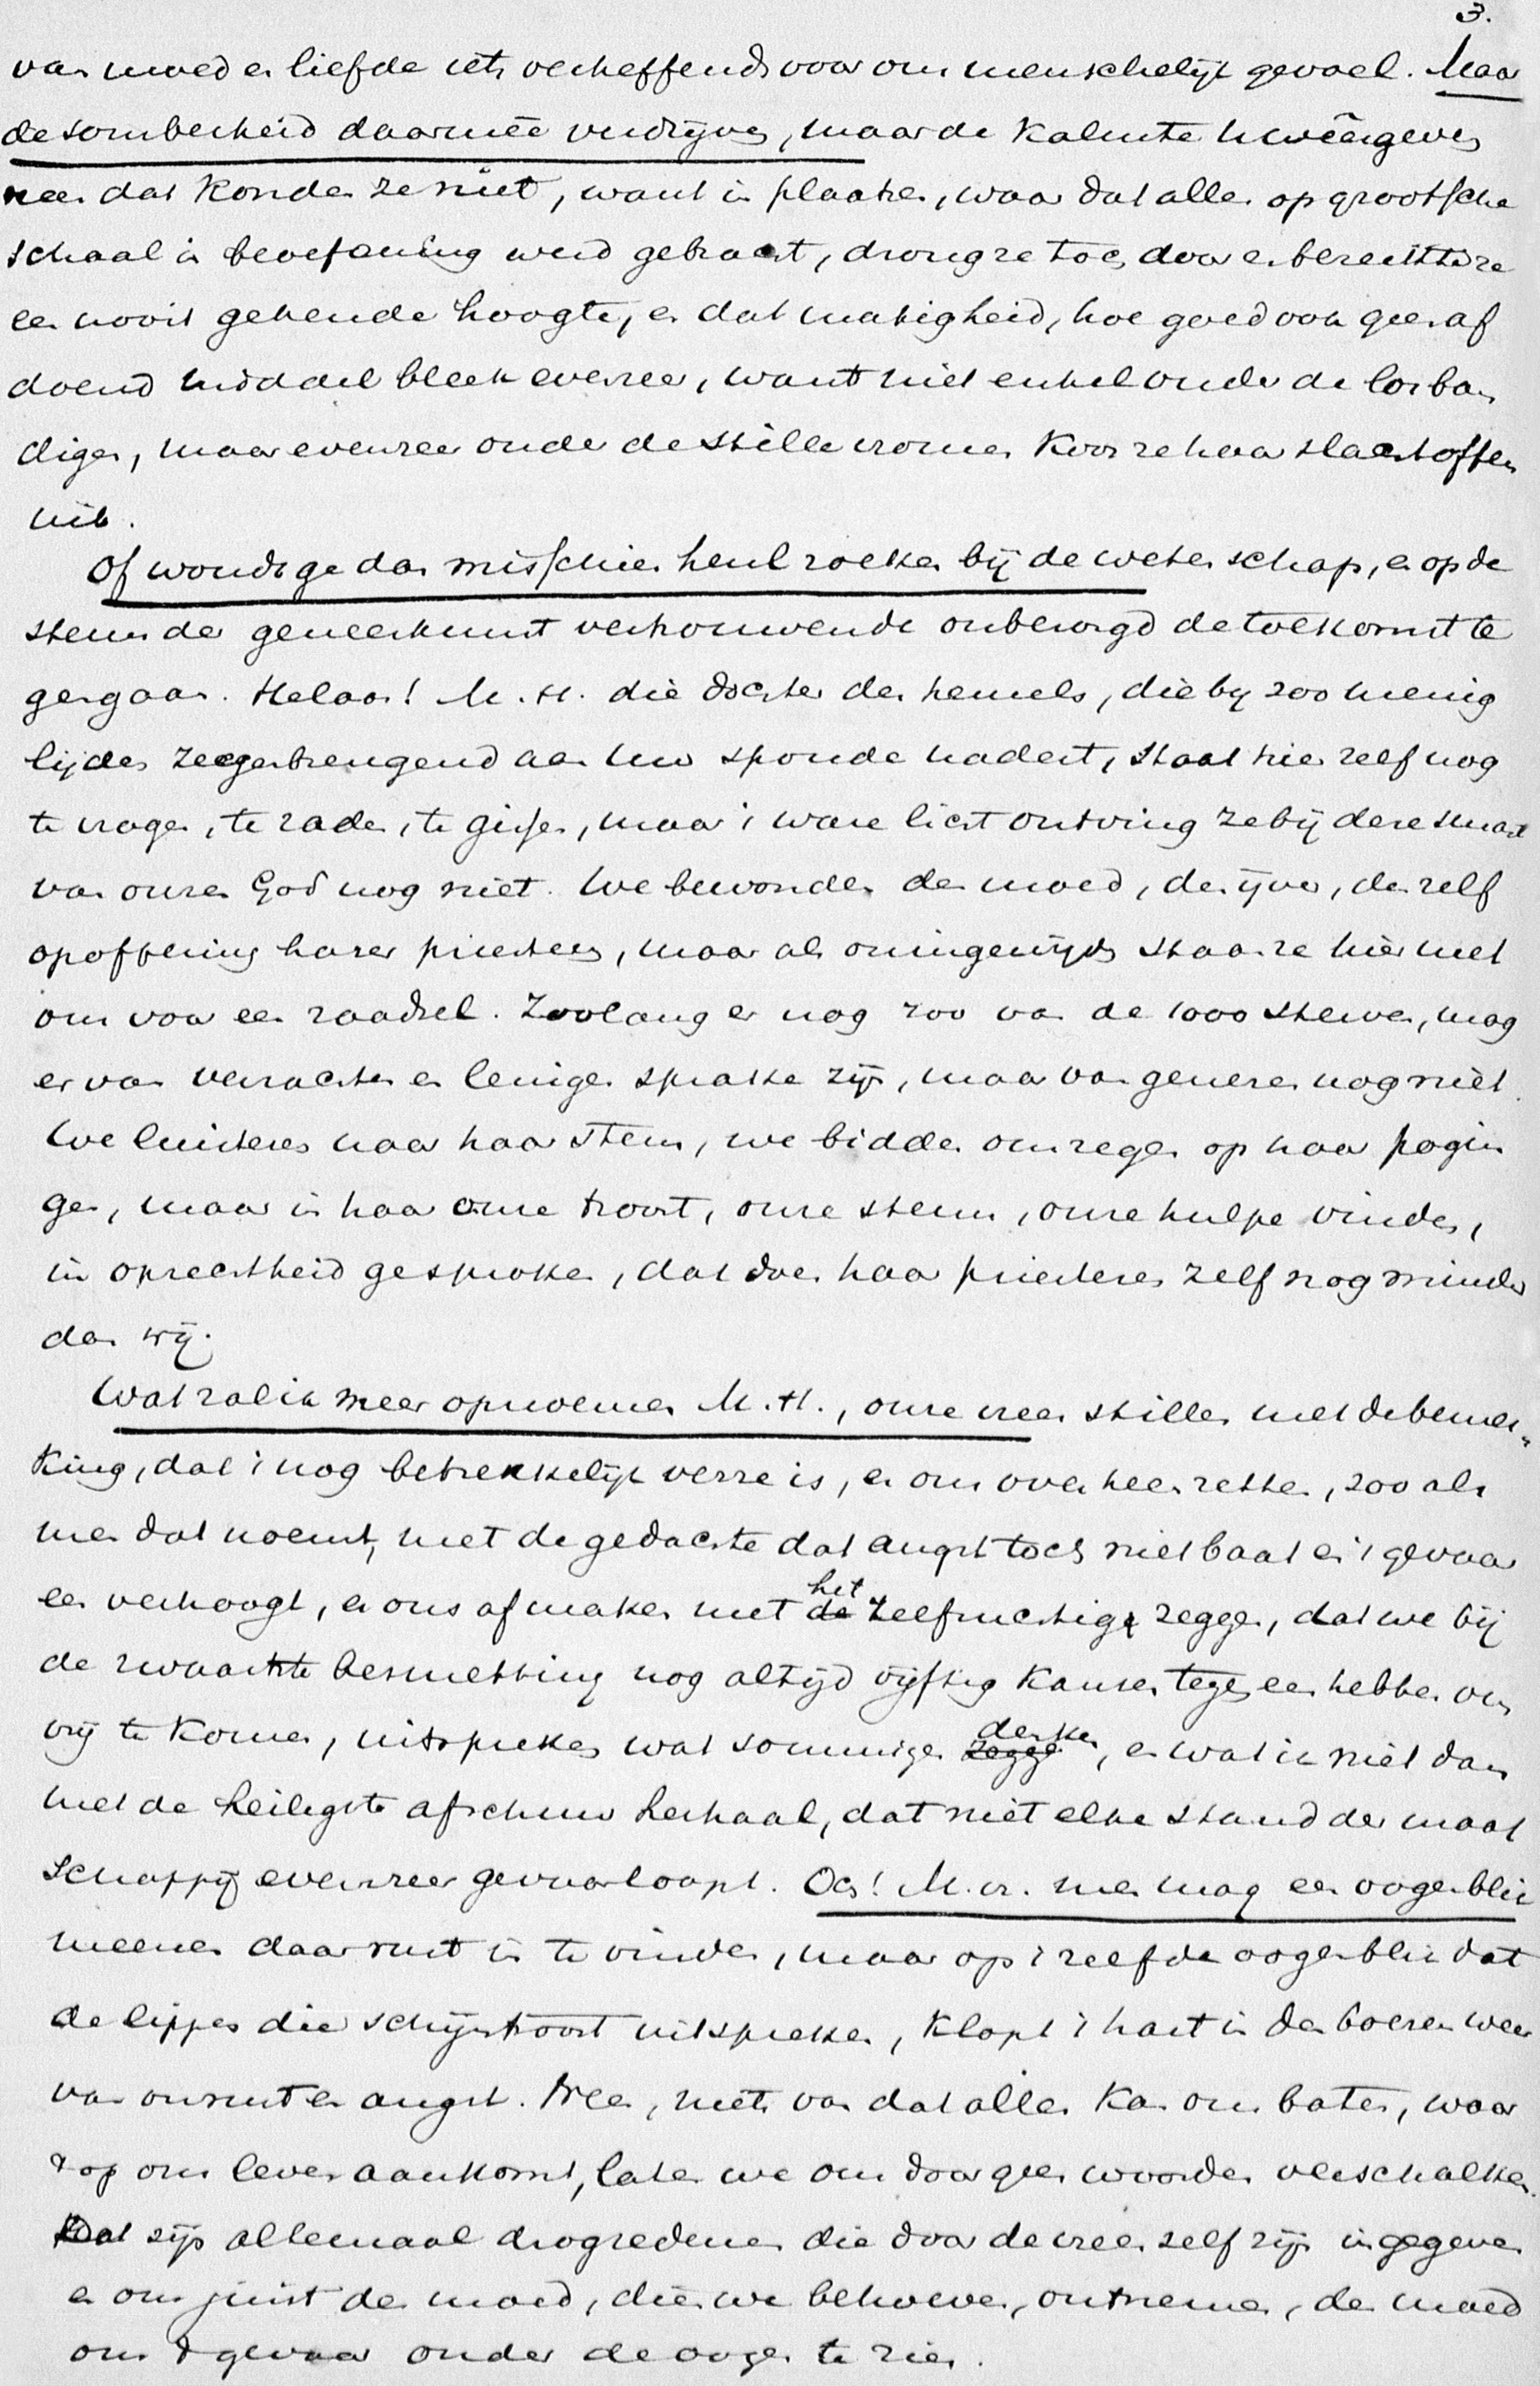 3.
van moed en liefde iets verheffends voor ons menschelijk gevoel. Maar
de somberheid daarmêe verdrijven, maar de kalmte u weêrgeven
neen dat konden ze niet, want in plaatsen, waar dat alles op grootsche
schaal in beoefening werd gebracht, drong ze toch door en bereikte ze
een nooit gekende hoogte, en dat matigheid, hoe goed ook geen af
doend middel bleek evenzeer, want niet enkel onder de losban
digen, maar evenzeer onder de stille vromen koos ze haar slachtoffers
uit.
Of woudt ge dan misschien heul zoeken bij de wetenschap, en op de
steun der geneeskunst vertrouwende onbezorgd de toekomst te
gengaan. Helaas! M. H. die dochter des hemels, die bij zoo menig
lijder zegenbrengend aan uw sponde nadert, staat hier zelf nog
te vragen, te raden, te gissen, maar 't ware licht ontving ze bij deze smart
van onzen God nog niet. We bewonderen den moed, den ijver, de zelf
opoffering harer priesters, maar als oningewijden staan ze hier met
ons voor een raadsel. Zoolang er nog 700 van de 1000 sterven, mag
er van verzachten en lenigen sprake zijn, maar van genezen nog niet.
We luisteren naar haar stem, we bidden om zegen op haar pogin
gen, maar in haar onze troost, onze steun, onze hulpe vinden,
in oprechtheid gesproken, dat doen haar priesteren zelf nog minder
dan wij.
Wat zal ik meer opnoemen M. H., onze vrees stillen met de bemer„
king, dat 't nog betrekkelijk verre is, er ons overheen zetten, zoo als
men dat noemt, met de gedachte dat angst toch niet baat en 't gevaar
eer verhoogt, er ons afmaken met het de zelfzuchtige zeggen, dat we bij
de zwaarste besmetting nog altijd vijftig kansen tegen een hebben om
vrij te komen, uitspreken wat sommigen denken zeggen, en wat ik niet dan
met de heiligste afschuw herhaal, dat niet elke stand der maat
schappij evenzeer gevaar loopt. Och! M. Vr. men mag een oogenblik
meenen daar rust in te vinden, maar op 't zelfde oogenblik dat
de lippen die schijntroost uitspreken, klopt 't hart in den boezem weer
van onrust en angst. Neen, niets van dat alles kan ons baten, waar
't op ons leven aankomt, laten we ons door geen woorden verschalken.
Dat zijn allemaal drogredenen die door de vrees zelf zijn ingegeven
en ons juist den moed, dien we behoeven, ontnemen, den moed
om 't gevaar onder de oogen te zien.